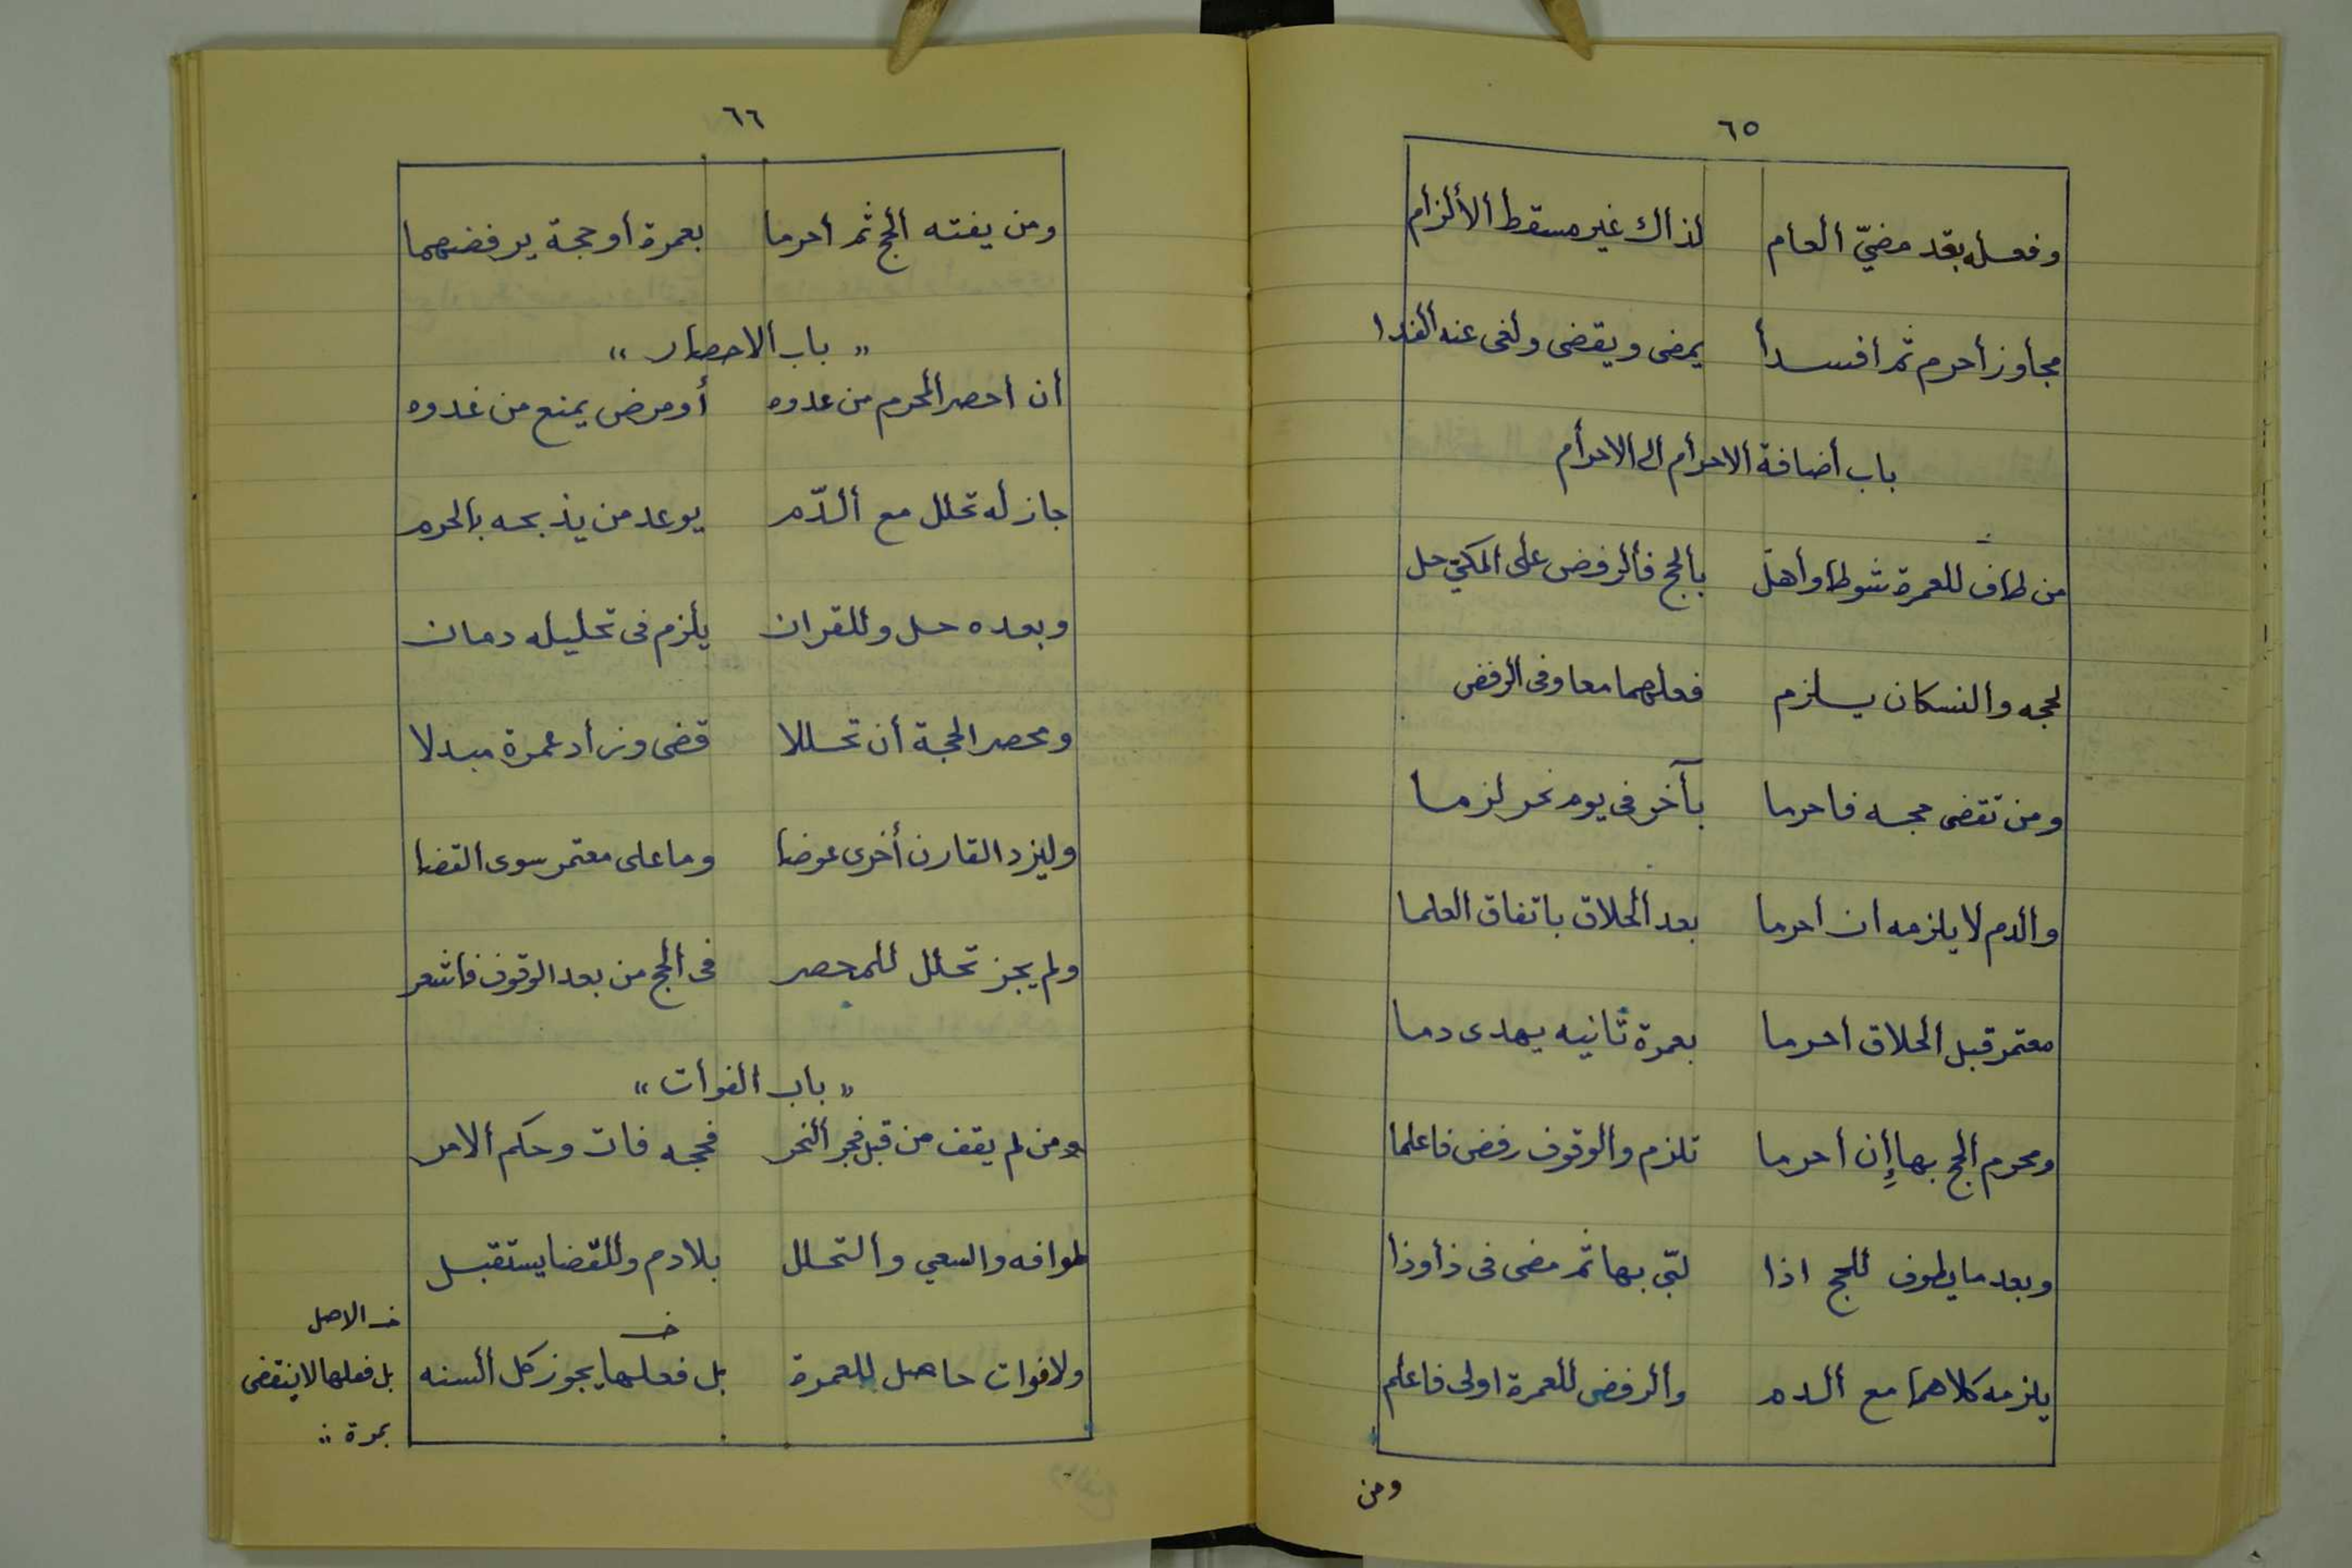 ٦٥
وفعله بعد مضيّ العام لذاك غير مسقط الألزام
مجاوز أحرم ثم افسدا يمضى ويقضى ولغى عنه الفدا
باب أضافة الاحرأم الى الاحرأم
من طاف للعمرة شوطا وأهل بالحج فألرفض على المكيّ حل
لحجه والنسكان يسلزم فعلهما معا وفى الرفض
ومن تقضى حجه فاحرما بآخر فى يوم نحر لزما
والدم لا يلزمه ان احرما بعد الحلاق باتفاق العلما
معتمر قبل الحلاق احرما بعمرة ثانيه يهدى دما
ومحرم الحج بها إن احرما تلزم والوقوف رفض فاعلما
وبعد ما يطوف للحج اذا لبّى بها ثم مضى فى ذأوذا
يلزمه كلاهما مع الدم وألرفض للعمرة اولى فاعلم
ومن
٦٦
ومن يفته الحج ثم احرما بعمرة أو حجة يرفضهما
" باب الاحصار "
ان احصر المحرم من عدوه أو مرض يمنع من غدوه
جاز له تحلل مع ألدّم يوعد من يذبحه بالحرم
وبعده حل وللقران يلزم فى تحليله دمان
ومحصر الحجة أن تحللا قضى وزأد عمرة مبدلا
وليزد القارن أخرى عوضا وما على معتمر سوى القضا
ولم يجز تحلل للمحصر فى الحج من بعد الوقوف فاشعر
" باب الفوات "
ومن لم يقف من قبل فجر ألنحر فحجه فات وحكم الامر
طوافه والسعي وألتحلل بلا دم وللقضا يستقبل
ولا فوات حاصل للعمرة بل فعلها يجوز كل ألسنه
خ
خ الاصل
بل فعلها لا ينقضى
بمرة